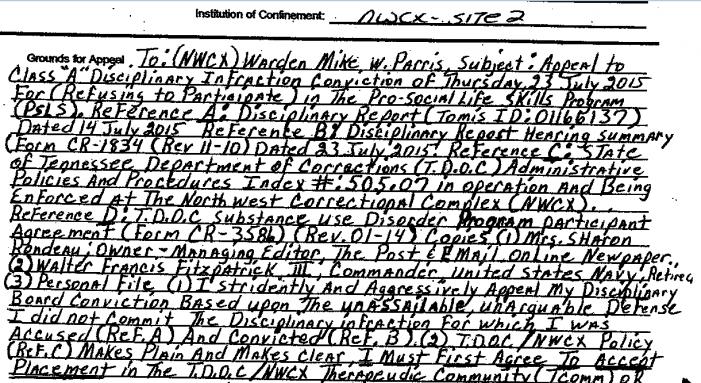 Institution of Confinement: NWCX - SITE 2
Grounds for Appeal. To: (NWCX) Warden Mike W. Parris, Subject: Appeal to
Class "A" Disciplinary Infraction Conviction of Thursday 23 July 2015
For (Refusing to Participate) in The Pro-Social Life Skills Program
(PSLS). Reference A: Disciplinary Report (Tomis ID: 01166137)
Dated 14 July 2015 Reference B: Disciplinary Report Hearing Summary
(Form CR-1834 (Rev 11-10) Dated 23 July 2015: Reference C: State
of Tennessee Department of Corrections (T.D.O.C) Administrative
Policies And Procedures Index #: 505.07 in operation And Being
Enforced At The Northwest Correctional Complex (NWCX).
Reference D: T.D.O.C Substance use Disorder Program participant
Agreement (Form CR-3586) (Rev. 01-14) Copies, (1) Mrs. Sharon
Rondeau; Owner - Managing Editor, The Post & EMail Online Newpaper,
(2) Walter Francis Fitzpatrick, III, Commander United States Navy, Retired
(3) Personal File, (1) I stridently And Aggressively Appeal My Disciplinary
Board Conviction Based upon The unassailable, unarguable Defense
I did not Commit The Disciplinary infraction For which I was
Accused (Ref. A) And Convicted (Ref. B). (2) T.D.O.C/NWCX Policy
(Ref. C) Makes Plain And Makes clear, I Must First Agree To Accept
Placement in The T.D.O.C/NWCX Therapeudic Community (TComm) OR